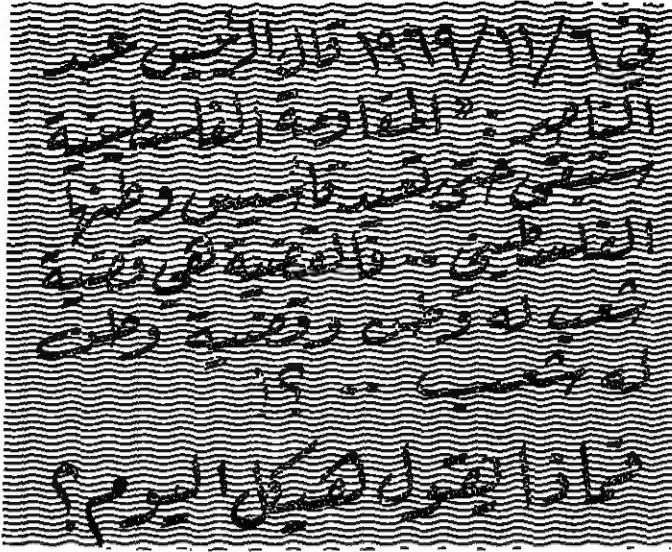 في ٦/١١/١٩٦٩ قال الرئيس عبد
الناصر : " المقاومة الفلسطينية
ستبقى حتى تسترد وتبني وطنها
الفلسطيني .. فالقضية هي قضية
شعب له وطن وقضية وطن
له شعب .. ؟!
فماذا نقول لهيكل اليوم ؟